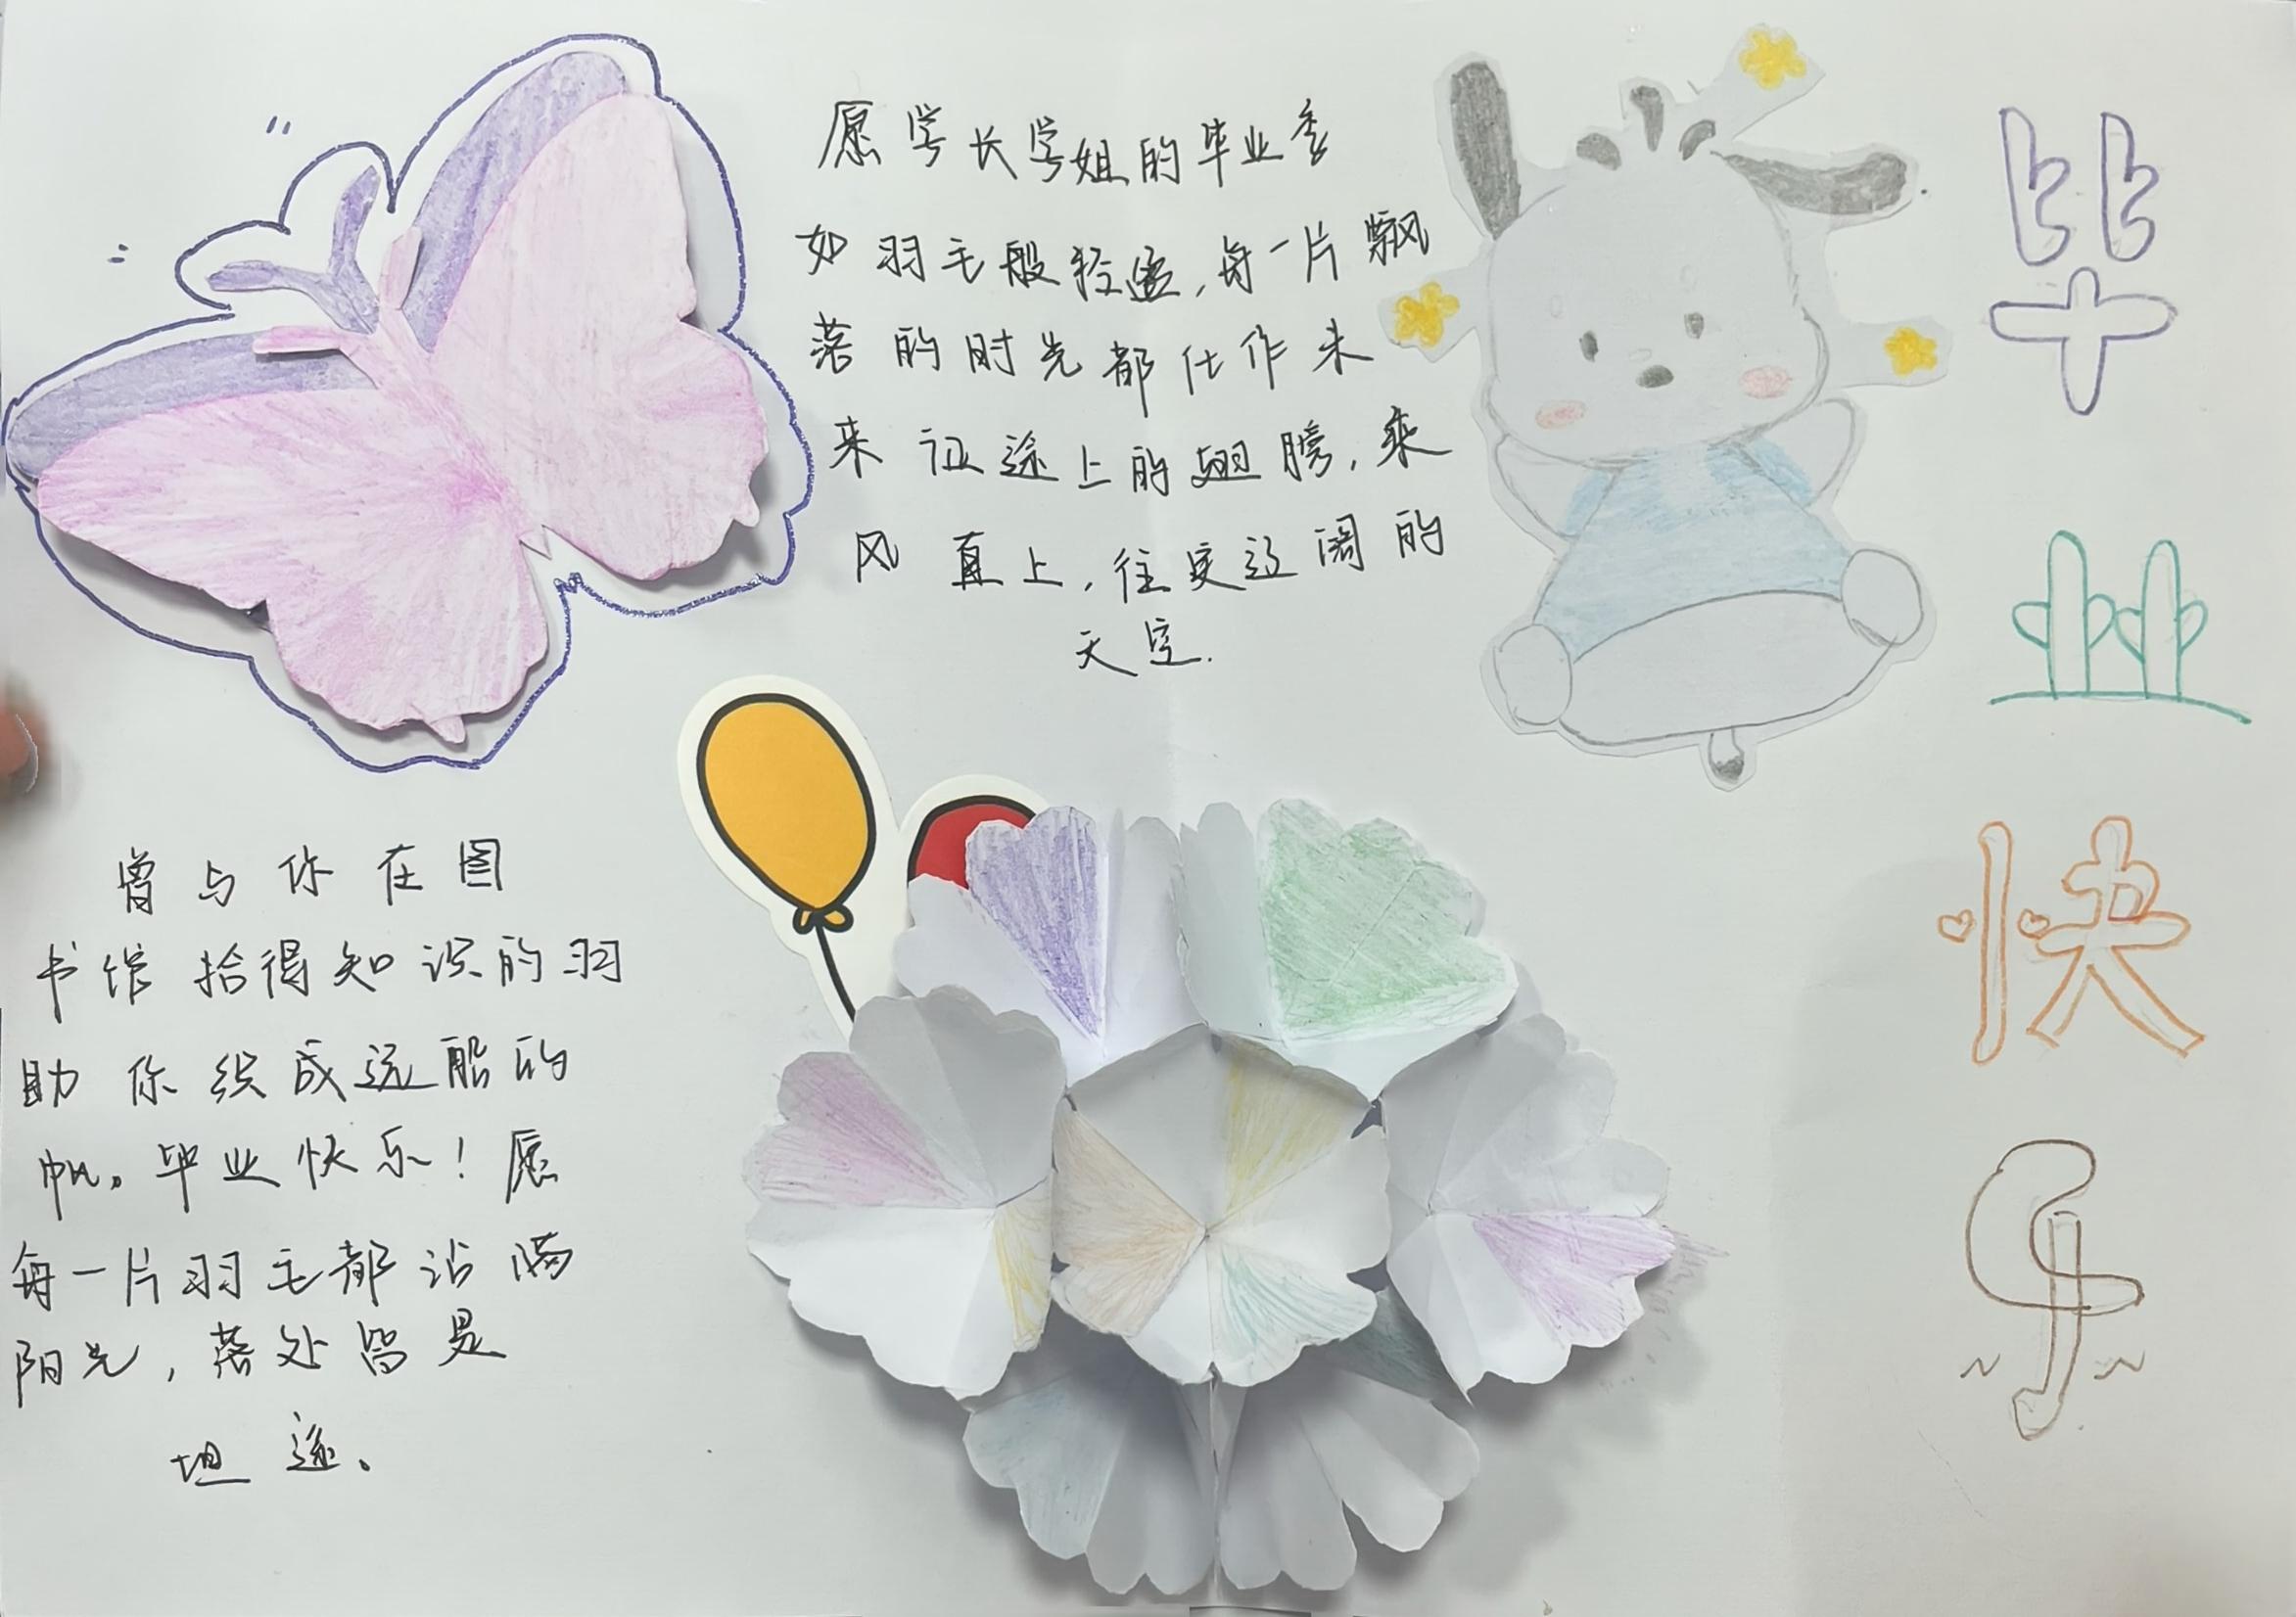 愿学长学姐的毕业季
如羽毛般轻盈,每一片飘
落的时光都化作未
来征途上的翅膀,乘
风直上,往更辽阔的
天空.
曾与你在图
书馆拾得知识的羽
助你织成远航的
帆。毕业快乐!愿
每一片羽毛都沾满
阳光,落处皆是
坦途。
毕
业
快
乐